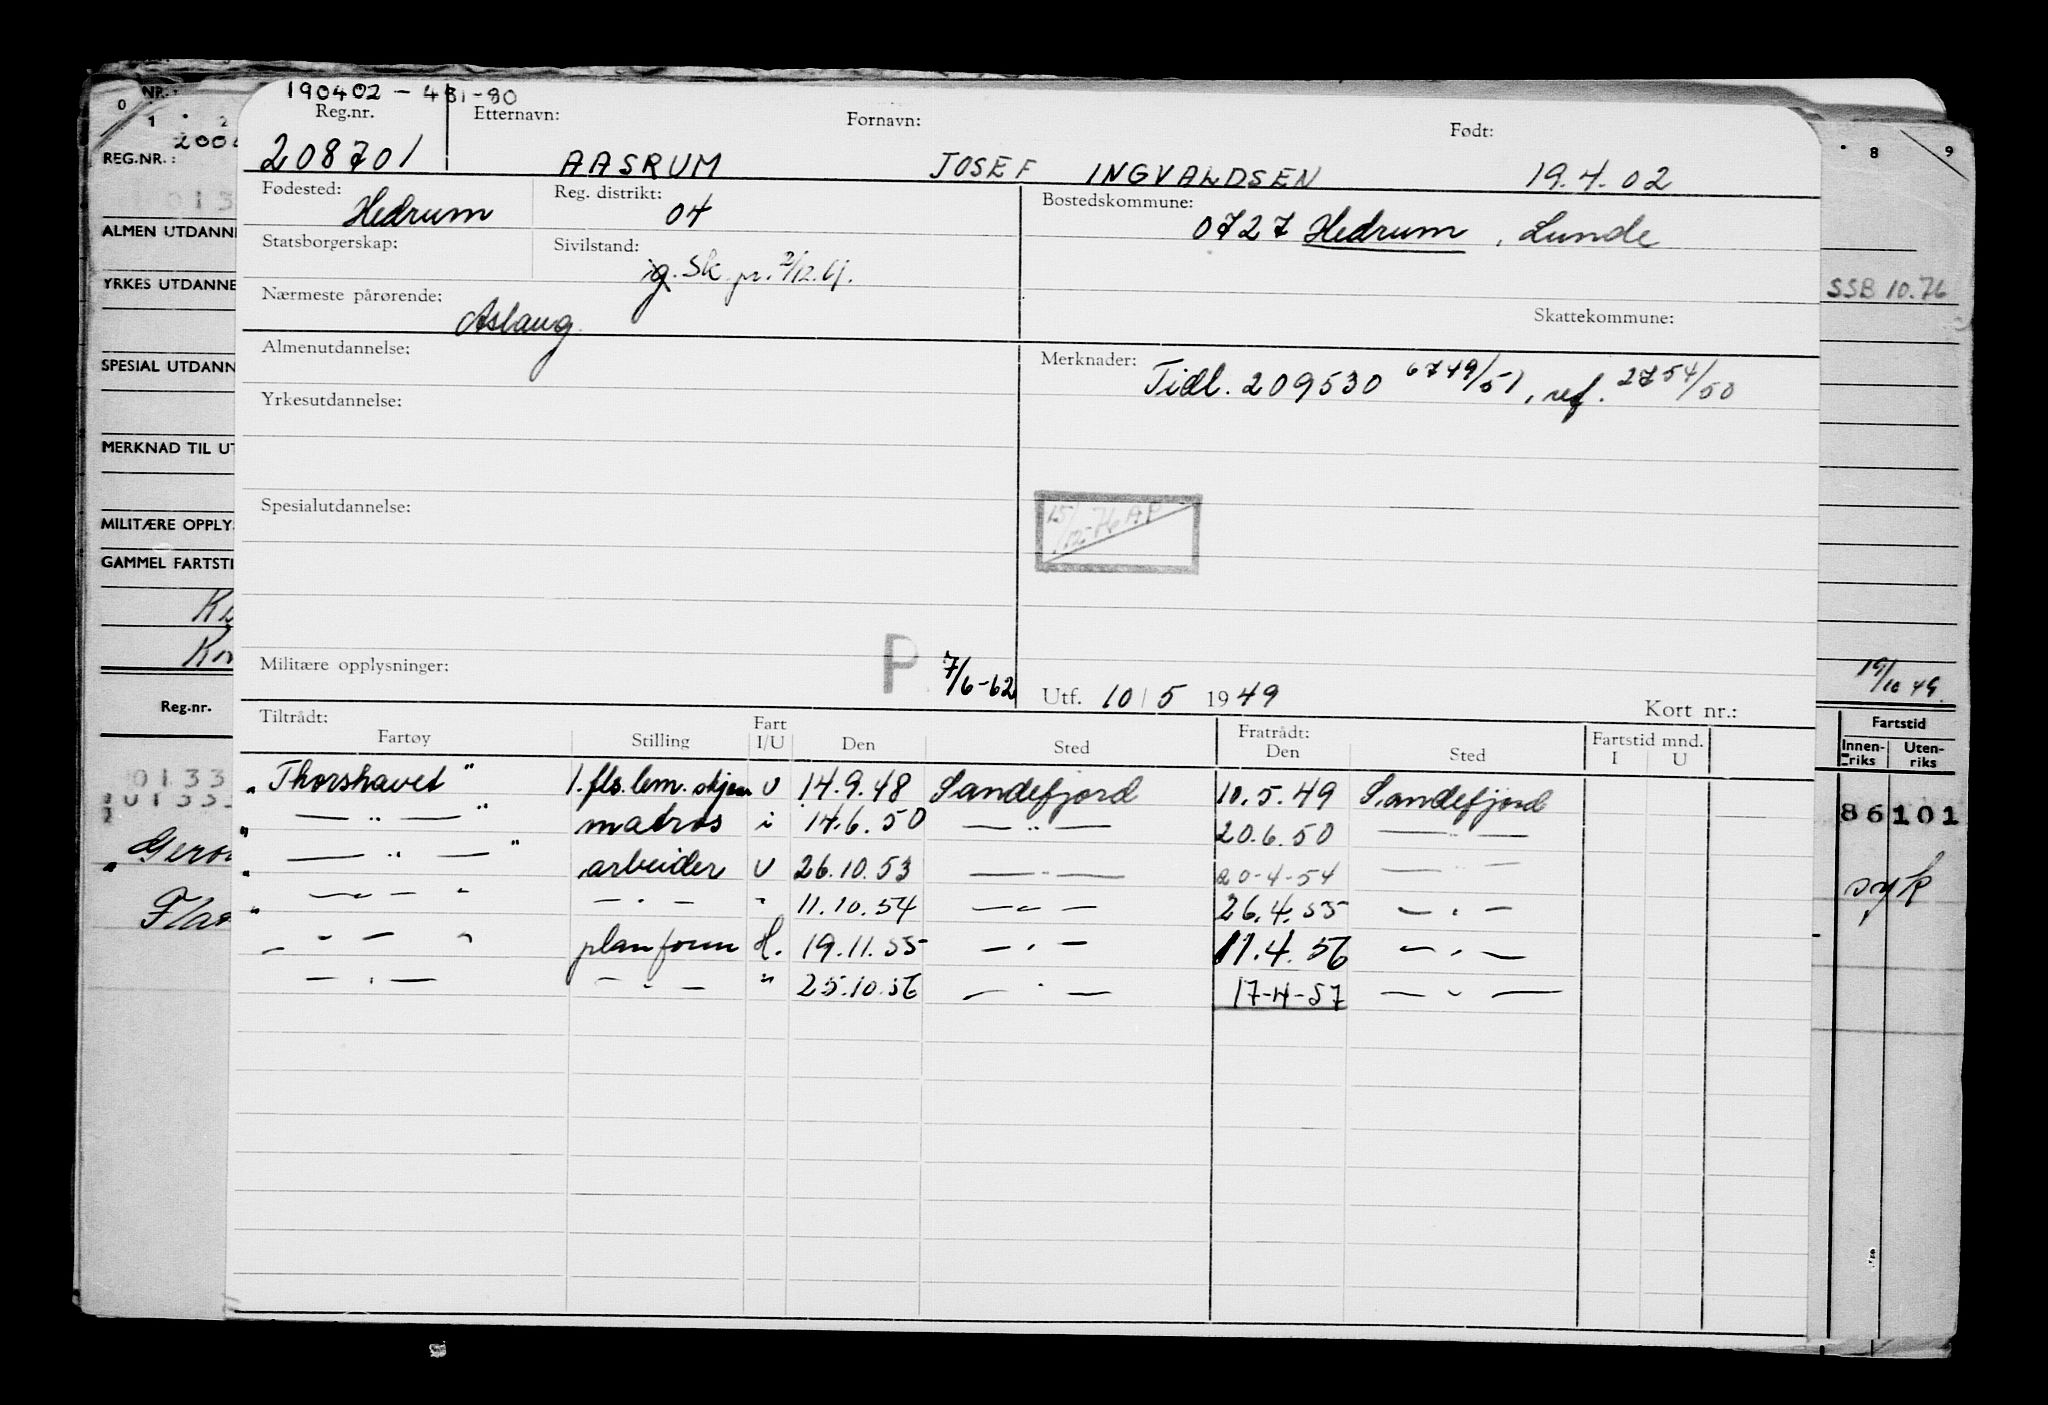 190402 - 481-80
Reg.nr. Etternavn: Fornavn: Født:
208701 AASRUM JOSEF INGVALDSEN 19.4.02
Fødested: Hedrum Reg. distrikt: 04 Bostedskommune: 0727 Hedrum, Lunde
Statsborgerskap: Sivilstand: ig. Sk. pr. 2/12.
Nærmeste pårørende: Aslaug Skattekommune:
Almenutdannelse: Merknader: Tidl. 209530 6749/51, ref. 2754/50
Yrkesutdannelse:
Spesialutdannelse: 15/12-76 AP
Militære opplysninger: P 7/6-62 Utf. 10/5 1949 Kort nr.:
Tiltrådt: Fratrådt:
Fartøy Stilling Fart I/U Den Sted Den Sted Fartstid mnd. I U
"Thorshavet" 1. fls. lem. U 14.9.48 Sandefjord 10.5.49 Sandefjord
" — " — " matros i 14.6.50 — " — 20.6.50 — " —
" — " — " arbeider U 26.10.53 — " — 20-4-54 — " —
" — " — " — " — " 11.10.54 — " — 26.4.55 — " —
— " — " planform H. 19.11.55 — " — 11.4.56 — " —
— " — — " — " 25.10.56 — " — 17-4-57 — " —
NR.:
0 1 2
REG.NR.:
ALMEN UTDANNE
YRKES UTDANNE
SPESIAL UTDANN
MERKNAD TIL UT
MILITÆRE OPPLYS
GAMMEL FARTSTI
Reg.nr.
0133
8 9
SSB 10.76
19/10 49
Fartstid
Innen-riks Uten-riks
86101
syk